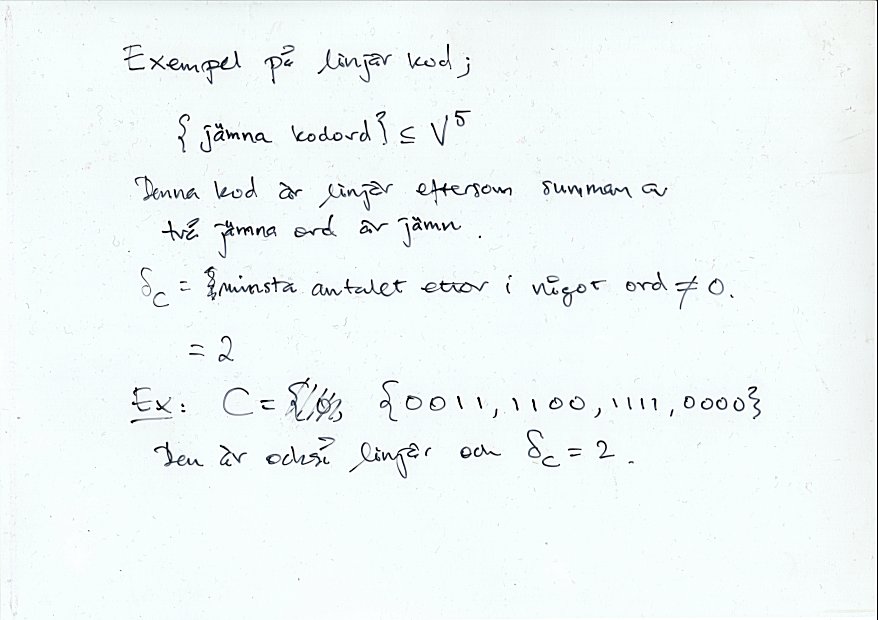 Exempel på linjär kod;
{jämna kodord} ⊆ V⁵
Denna kod är linjär eftersom summan av
två jämna ord är jämn.
δ_C = {minsta antalet ettor i något ord ≠ 0.
= 2
Ex: C = {0011, 1100, 1111, 0000}
Den är också linjär och δ_C = 2.